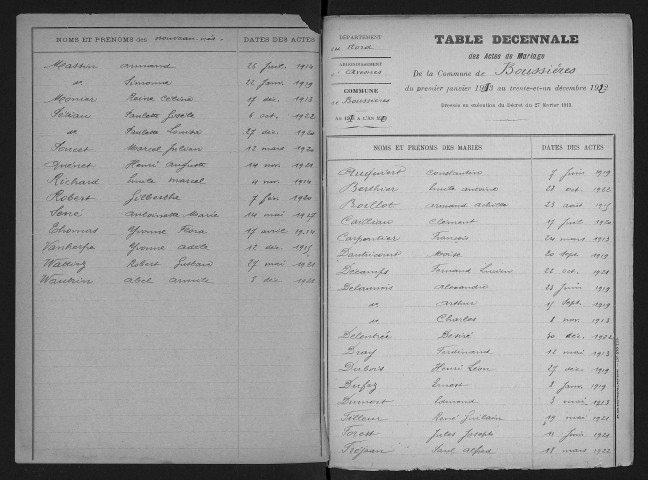 NOMS ET PRÉNOMS des nouveau-nés. DATES DES ACTES
Massin Armand 26 juil. 1914
do Simonne 22 janv. 1919
Monier Reine Célina 17 déc. 1913
Paulette Gisèle 6 oct. 1922
do Paulette Louisa 27 déc. 1920
Poncet Marcel Julien 12 mars 1920
Quénet Henri Auguste 14 nov. 1921
Richard Emile Marcel 4 nov. 1914
Robert Gilberthe 7 fév. 1920
Sené Antoinette Marie 14 mai 1917
Thomas Yvonne Flora 17 avril 1914
Vanherpe Yvonne Adèle 12 déc. 1915
Robert Gustave 27 mai 1921
Wautrin Abel 8 déc 1921
DÉPARTEMENT
du Nord
ARRONDISSEMENT
d'Avesnes
COMMUNE
de Boussières
AN 1913 A L'AN 1922
TABLE DECENNALE
des Actes de Mariage
De la Commune de Boussières
du premier janvier 1913 au trente-et-un décembre 1922
Dressée en exécution du Décret du 27 février 1913.
NOMS ET PRÉNOMS DES MARIÉS DATES DES ACTES
Constantin 7 juin 1919
Berthier Emile 28 oct. 1922
Boillot Armand Achille 23 août 1915
Clément 17 juil 1920
Carpentier François 24 mars 1913
Moïse 20 sept 1919
Décamps Fernand Lucien 22 oct. 1921
Delaunois Alexandre 28 juin 1919
do Arthur 17 sept. 1919
do Charles 8 nov. 1913
Désiré 30 déc. 1922
Dray Ferdinand 12 mai 1913
Dubois Henri Léon 27 déc. 1919
Dufez Ernest 8 janv. 1919
Dumont Edmond 3 mai 1921
Filleur René Guilain 19 mai 1921
Forest Jules Joseph 11 juin 1921
Frojean Paul Alfred 18 mars 1922